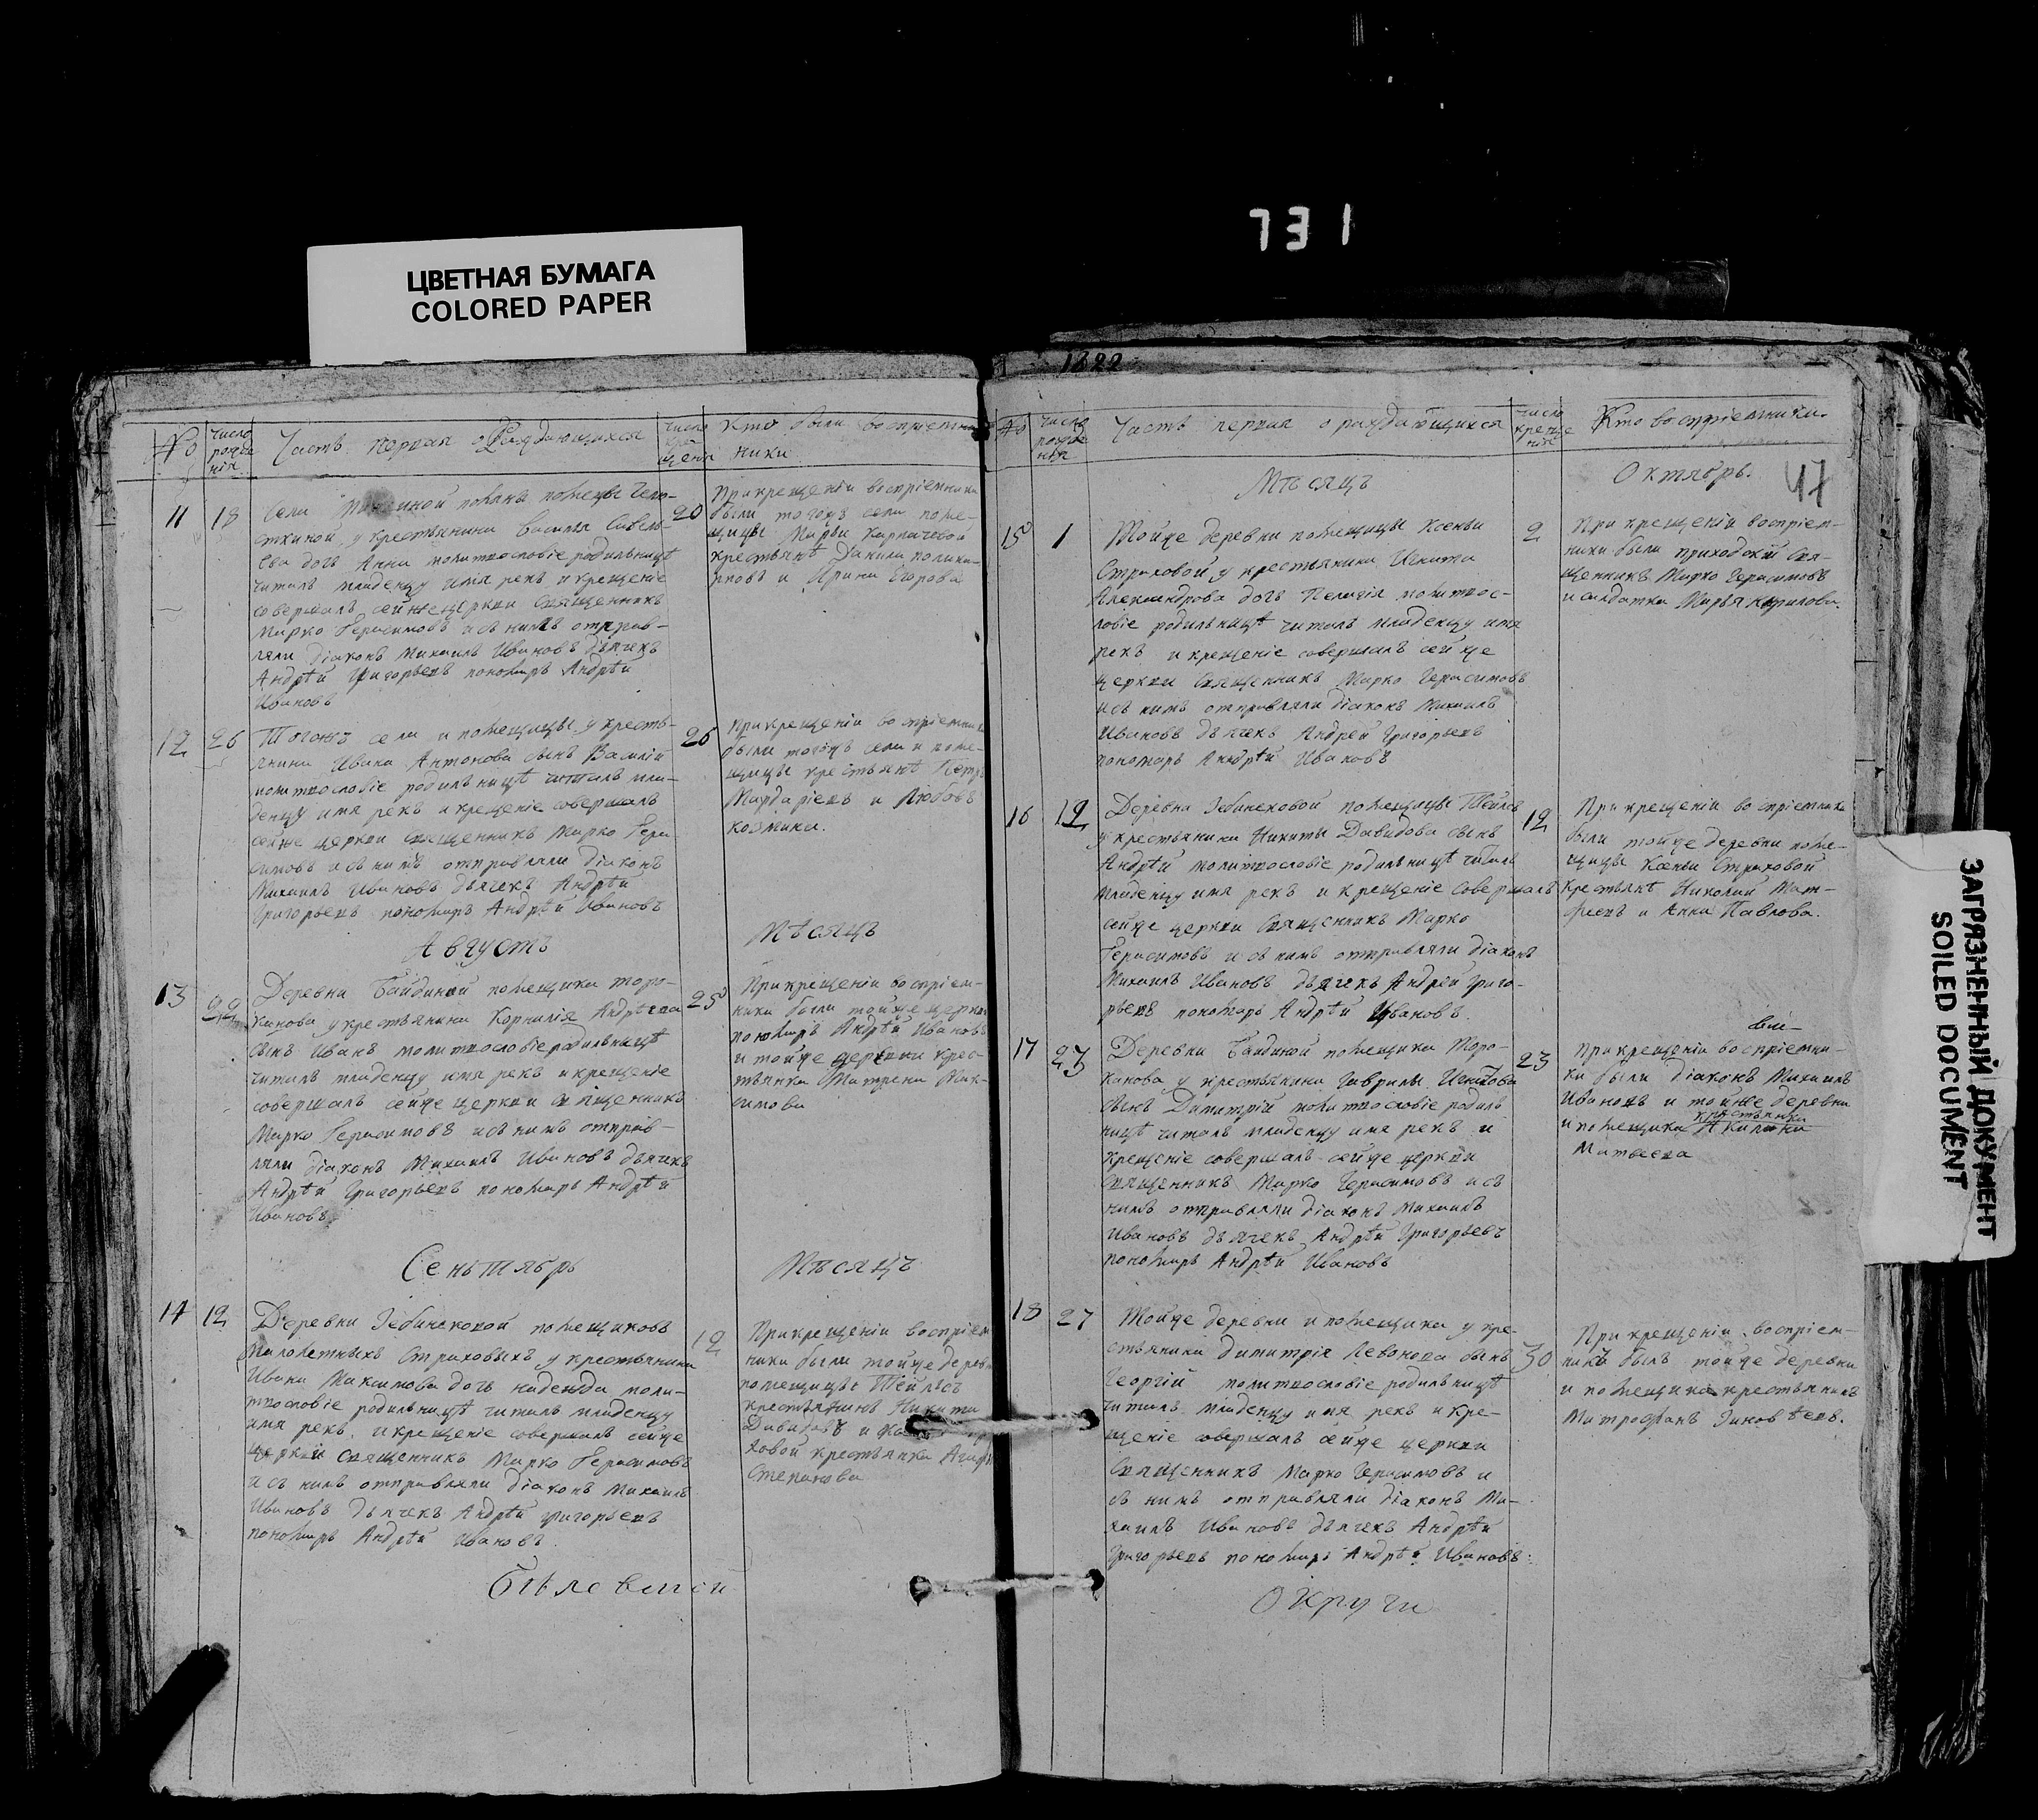 731
ЦВЕТНАЯ БУМАГА
COLORED PAPER
1822
№
число рожде нія
Часть первая о Раждающихся
число кре щенія
Кто были воспріемни
ники
11
18
Села помѣ помещцы Чело-
сткиной, у крестьянина Василья Савель-
ева дочь Анна молитвословіе родильницѣ
читалъ младенцу имя рекъ и крещеніе
совершалъ сейже церкви священникъ
Марко Герасимовъ и съ нимъ отправ-
ляли діаконъ Михаилъ Ивановъ дьячекъ
Андрѣй Григорьевъ пономарь Андрѣй
Ивановъ
20
При крещеніи воспріемники
были тогожъ села поме-
щицы Марьи Карпачевой
крестьянѣ Данила полика-
рповъ и Ирина Егорова
12
26
Тогожъ села и помещицы у кресть-
янина Ивана Антонова сынъ Василій
молитвословіе родильницѣ читалъ мла-
денцу имя рекъ и крещеніе совершалъ
сейже церкви священникъ Марко Гера-
симовъ и съ нимъ отправляли діаконъ
Михаилъ Ивановъ дьячекъ Андрѣй
Григорьевъ пономарь Андрѣй Ивановъ
26
При крещеніи воспріемники
были тогожъ села и поме-
щицы крестьянѣ Петръ
Мардаріевъ и Любовь
козмина.
Августъ
Мѣсяцъ
13
22
Деревни Байдиной помещика Торо-
канова у крестьянина Корнилія Андрѣева
сынъ Иванъ молитвословіе родильницѣ
читалъ младенцу имя рекъ и крещеніе
совершалъ сейже церкви священникъ
Марко Герасимовъ и съ нимъ отправ-
ляли діаконъ Михаилъ Ивановъ дьячекъ
Андрѣй Григорьевъ пономарь Андрѣй
Ивановъ
25
При крещеніи воспріем-
ники были тойже церкви
пономарь Андрѣй Ивановъ
и тойже деревни крес-
тьянка Матрена Мак-
симова
Сентябрь
Мѣсяцъ
14
12
Деревни Зебинсковой помещиковъ
Малолетныхъ Страховыхъ у крестьянина
Ивана Максимова дочь надежда моли-
твословіе родильницѣ читалъ младенцу
имя рекъ, и крещеніе совершалъ сейже
церкви священникъ Марко Герасимовъ
и съ нимъ отправляли діаконъ Михаилъ
Ивановъ дьячекъ Андрѣй Григорьевъ
пономарь Андрѣй Ивановъ.
12
При крещеніи воспріем
ники были тойже деревни
помещицы Тейлсъ
крестьянинъ Никита
Давидовъ и
ховой крестьянка Агафья
Степанова
Бѣлевской
№
число рожде нія
Часть первая о раждающихся
число креще нія
Кто воспріемники.
Мѣсяцъ
Октябрь.
47
15
1
Тойже деревни помещицы Ксеньи
Страховой у крестьянина Игната
Александрова дочь Пелагія молитвос-
ловіе родильницѣ читалъ младенцу имя
рекъ и крещеніе совершалъ сейже
церкви священникъ Марко Герасимовъ
и съ нимъ отправляли діаконъ Михаилъ
Ивановъ дьячекъ Андрей Григорьевъ
пономарь Андрѣй Ивановъ
2
При крещеніи воспріем-
ники были приходскій Свя-
щенникъ Марко Герасимовъ
и солдатка Марья Кирилова.
16
12
Деревни Зебинсковой помещицы Тейлсъ
у крестьянина Никиты Давидова сынъ
Андрѣй молитвословіе родильницѣ читалъ
младенцу имя рекъ и крещеніе совершалъ
сейже церкви священникъ Марко
Герасимовъ и съ нимъ отправляли діаконъ
Михаилъ Ивановъ дьячекъ Андрей Григо-
рьевъ пономарь Андрѣй Ивановъ.
12
При крещеніи воспріемники
были тойже деревни поме-
щицы Ксеньи Страховой
крестьянѣ Николай Мат-
феевъ и Анна Павлова.
17
23
Деревни Байдиной помещика Торо-
канова у крестьянина Гаврилы Игнатова
сынъ Димитрій молитвословіе родиль
ницѣ читалъ младенцу имя рекъ и
крещеніе совершалъ сейже церкви
священникъ Марко Герасимовъ и съ
нимъ отправляли діаконъ Михаилъ
Ивановъ дьячекъ Андрѣй Григорьевъ
пономарь Андрѣй Ивановъ
23
При крещеніи воспріемни-
ки были діаконъ Михаилъ
Ивановъ и тойже деревни
крестьянка
и помещика Акилина
Матвеева
18
27
Тойже деревни и помещика у кре-
стьянина Димитрія Леванова сынъ
Георгій молитвословіе родильницѣ
читалъ младенцу имя рекъ и кре-
щеніе совершалъ сейже церкви
Священникъ Марко Герасимовъ и
съ нимъ отправляли діаконъ Ми-
хаилъ Ивановъ дьячекъ Андрѣй
Григорьевъ пономарь Андрѣй Ивановъ.
30
При крещеніи воспріем-
никъ былъ тойже деревни
и помещика крестьянинъ
Митрофанъ Зиновѣевъ.
Округи
ЗАГРЯЗНЕННЫЙ ДОКУМЕНТ
SOILED DOCUMENT